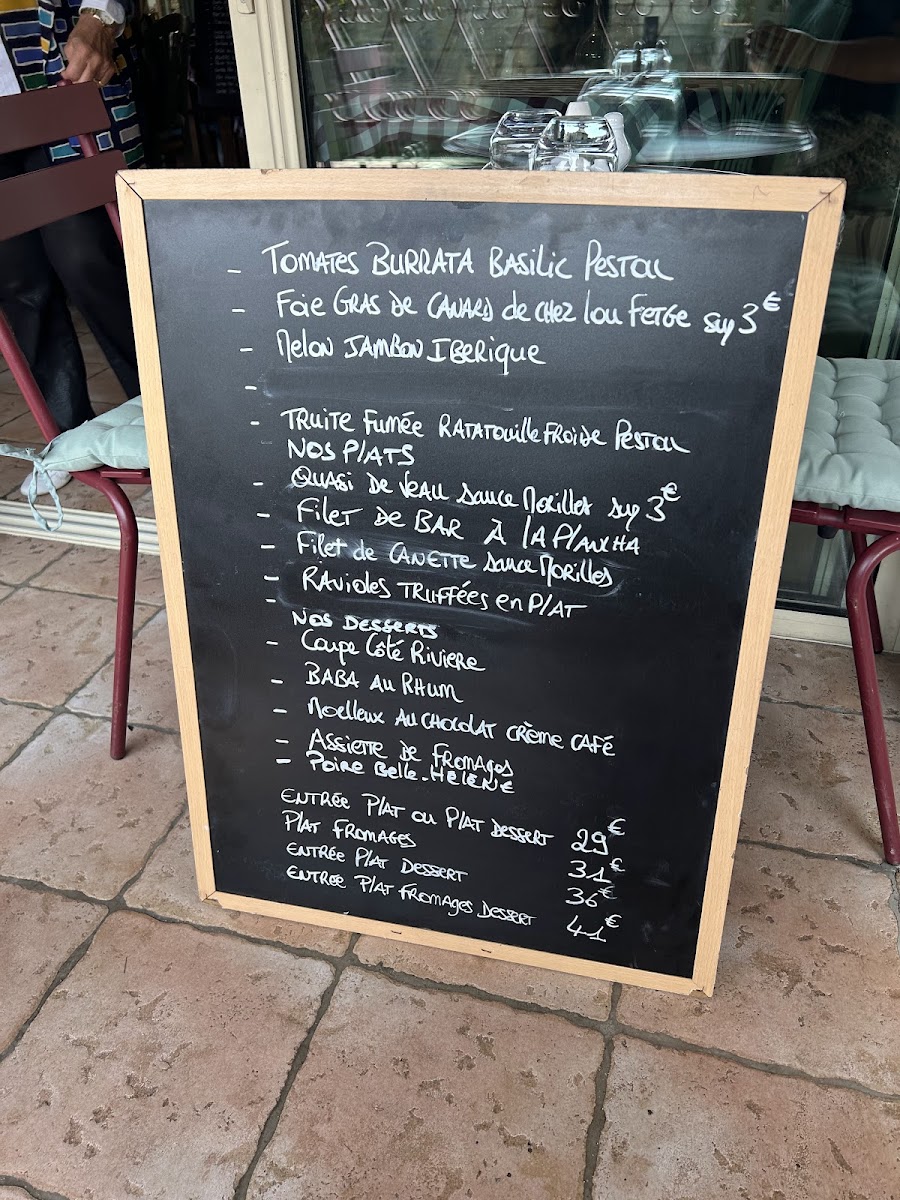 - TOMATES BURRATA BASILIC PESTOU
- Foie GRAS de CANARD de CHEZ Lou FETGE sup 3€
- Melon JAMBON IBERIQUE
-
- TRUITE Fumée RATATOUILLE FROIDE PESTOU
NOS PLATS
- QUASI DE VEAU sauce Morilles sup 3€
- Filet DE BAR À LA PLANCHA
- Filet de CANETTE sauce Morilles
- RAVIOLES TRUFFÉES en PLAT
-
NOS DESSERTS
- Coupe Côté RIVIERE
- BABA AU RHUM
- Moelleux AU CHOCOLAT CRÈME CAFÉ
- ASSIETTE DE FROMAGES
- POIRE Belle-HELENE
ENTRÉE PLAT ou PLAT DESSERT 29€
PLAT FROMAGES 31€
ENTRÉE PLAT DESSERT 36€
ENTRÉE PLAT FROMAGES DESSERT 41€